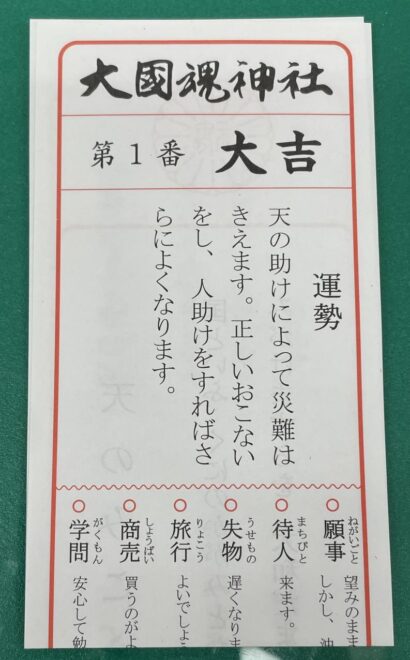 大國魂神社
第1番 大吉
運勢
天の助けによって災難は
きえます。正しいおこない
をし、人助けをすればさ
らによくなります。
願事 ねがいごと
望みのまま
しかし、
待人 まちびと
来ます。
失物 うせもの
遅くなりま
旅行 りょこう
よいでしょ
商売 しょうばい
買うのがよ
学問 がくもん
安心して勉